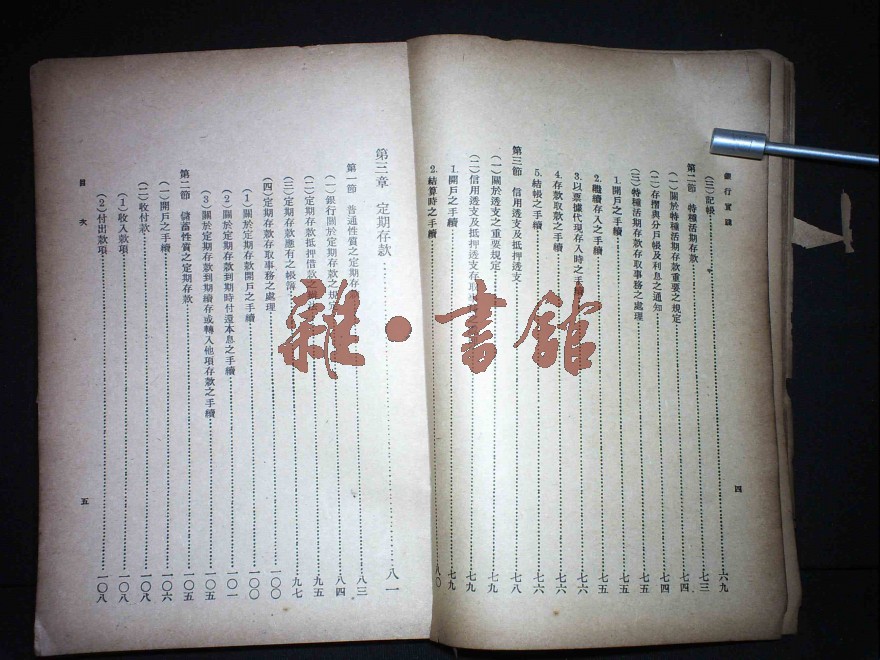 銀行實踐
(三)記帳……六九
第二節 特種活期存款……七三
(一)關於特種活期存款重要之規定……七四
(二)存摺與分戶帳及利息之通知……七四
(三)特種活期存款存取事務之處理……七五
1.開戶之手續……七五
2.繼續存入之手續……七五
3.以票據代現存入時之手續……七六
4.存款取款之手續……七六
5.結帳之手續……七六
第三節 信用透支及抵押透支……七八
(一)關於透支之重要規定……七九
(二)信用透支及抵押透支存取……七九
1.開戶之手續……七九
2.結算時之手續……八〇
四
第三章 定期存款……八一
第一節 普通性質之定期存……八三
(一)銀行關於定期存款之規定……八四
(二)定期存款抵押借款之……九五
(三)定期存款應有之帳簿……九七
(四)定期存款存取事務之處理……一〇〇
(1)關於定期存款開戶之手續……一〇〇
(2)關於定期存款到期時付還本息之手續……一〇一
(3)關於定期存款到期續存或轉入他項存款之手續……一〇五
第二節 儲蓄性質之定期存款……一〇五
(一)開戶之手續……一〇六
(二)收付款……一〇八
(1)收入款項……一〇八
(2)付出款項……一〇八
目次
五
雜·書館